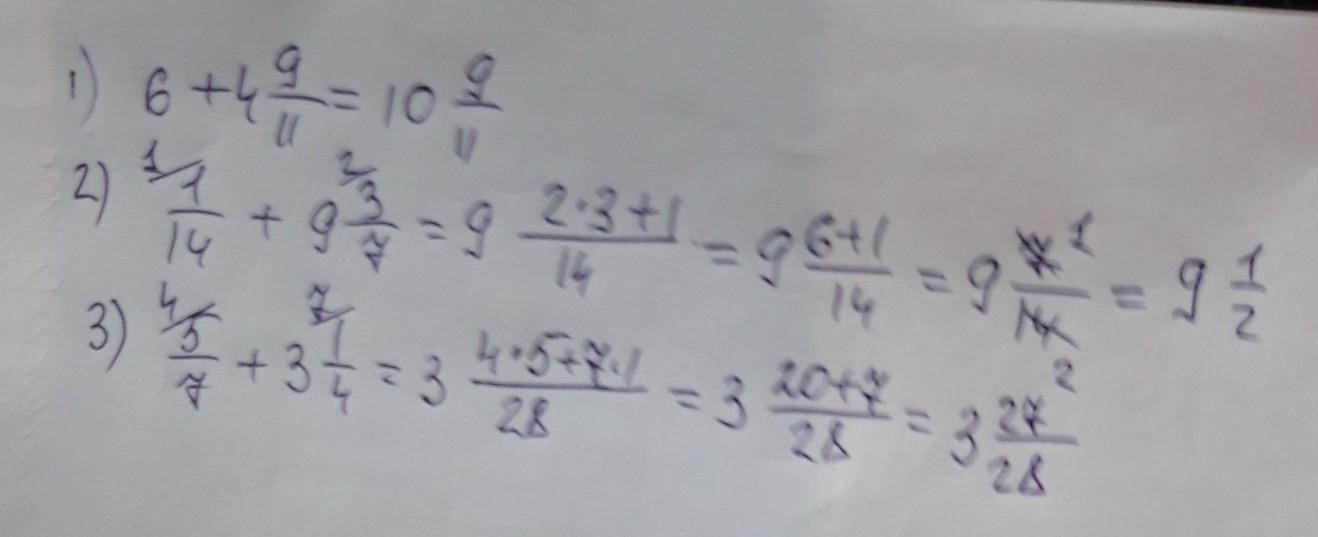 1) 6 + 4 9/11 = 10 9/11
2) 1/ 1/14 + 9 2/ 3/7 = 9 2·3+1/14 = 9 6+1/14 = 9 7 1/14 2 = 9 1/2
3) 4/ 5/7 + 3 7/ 1/4 = 3 4·5+7·1/28 = 3 20+7/28 = 3 27/28